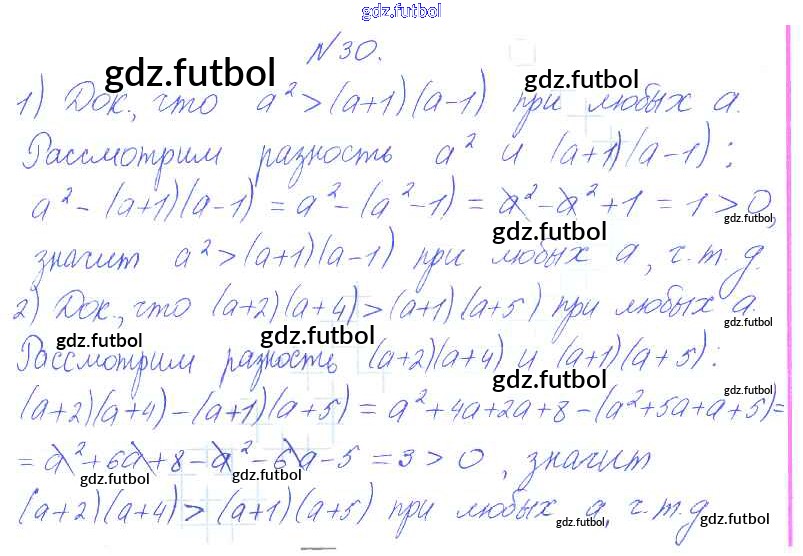 gdz.futbol
N 30.
gdz.futbol
gdz.futbol
1) Док., что a² > (a+1)(a-1) при любых a.
Рассмотрим разность a² и (a+1)(a-1):
a² - (a+1)(a-1) = a² - (a² - 1) = a² - a² + 1 = 1 > 0,
gdz.futbol
gdz.futbol
значит a² > (a+1)(a-1) при любых a, ч.т.д.
2) Док., что (a+2)(a+4) > (a+1)(a+5) при любых a.
gdz.futbol
gdz.futbol
gdz.futbol
Рассмотрим разность (a+2)(a+4) и (a+1)(a+5):
gdz.futbol
gdz.futbol
(a+2)(a+4) - (a+1)(a+5) = a² + 4a + 2a + 8 - (a² + 5a + a + 5) =
= a² + 6a + 8 - a² - 6a - 5 = 3 > 0, значит
gdz.futbol
gdz.futbol
(a+2)(a+4) > (a+1)(a+5) при любых a, ч.т.д
gdz.futbol
gdz.futbol